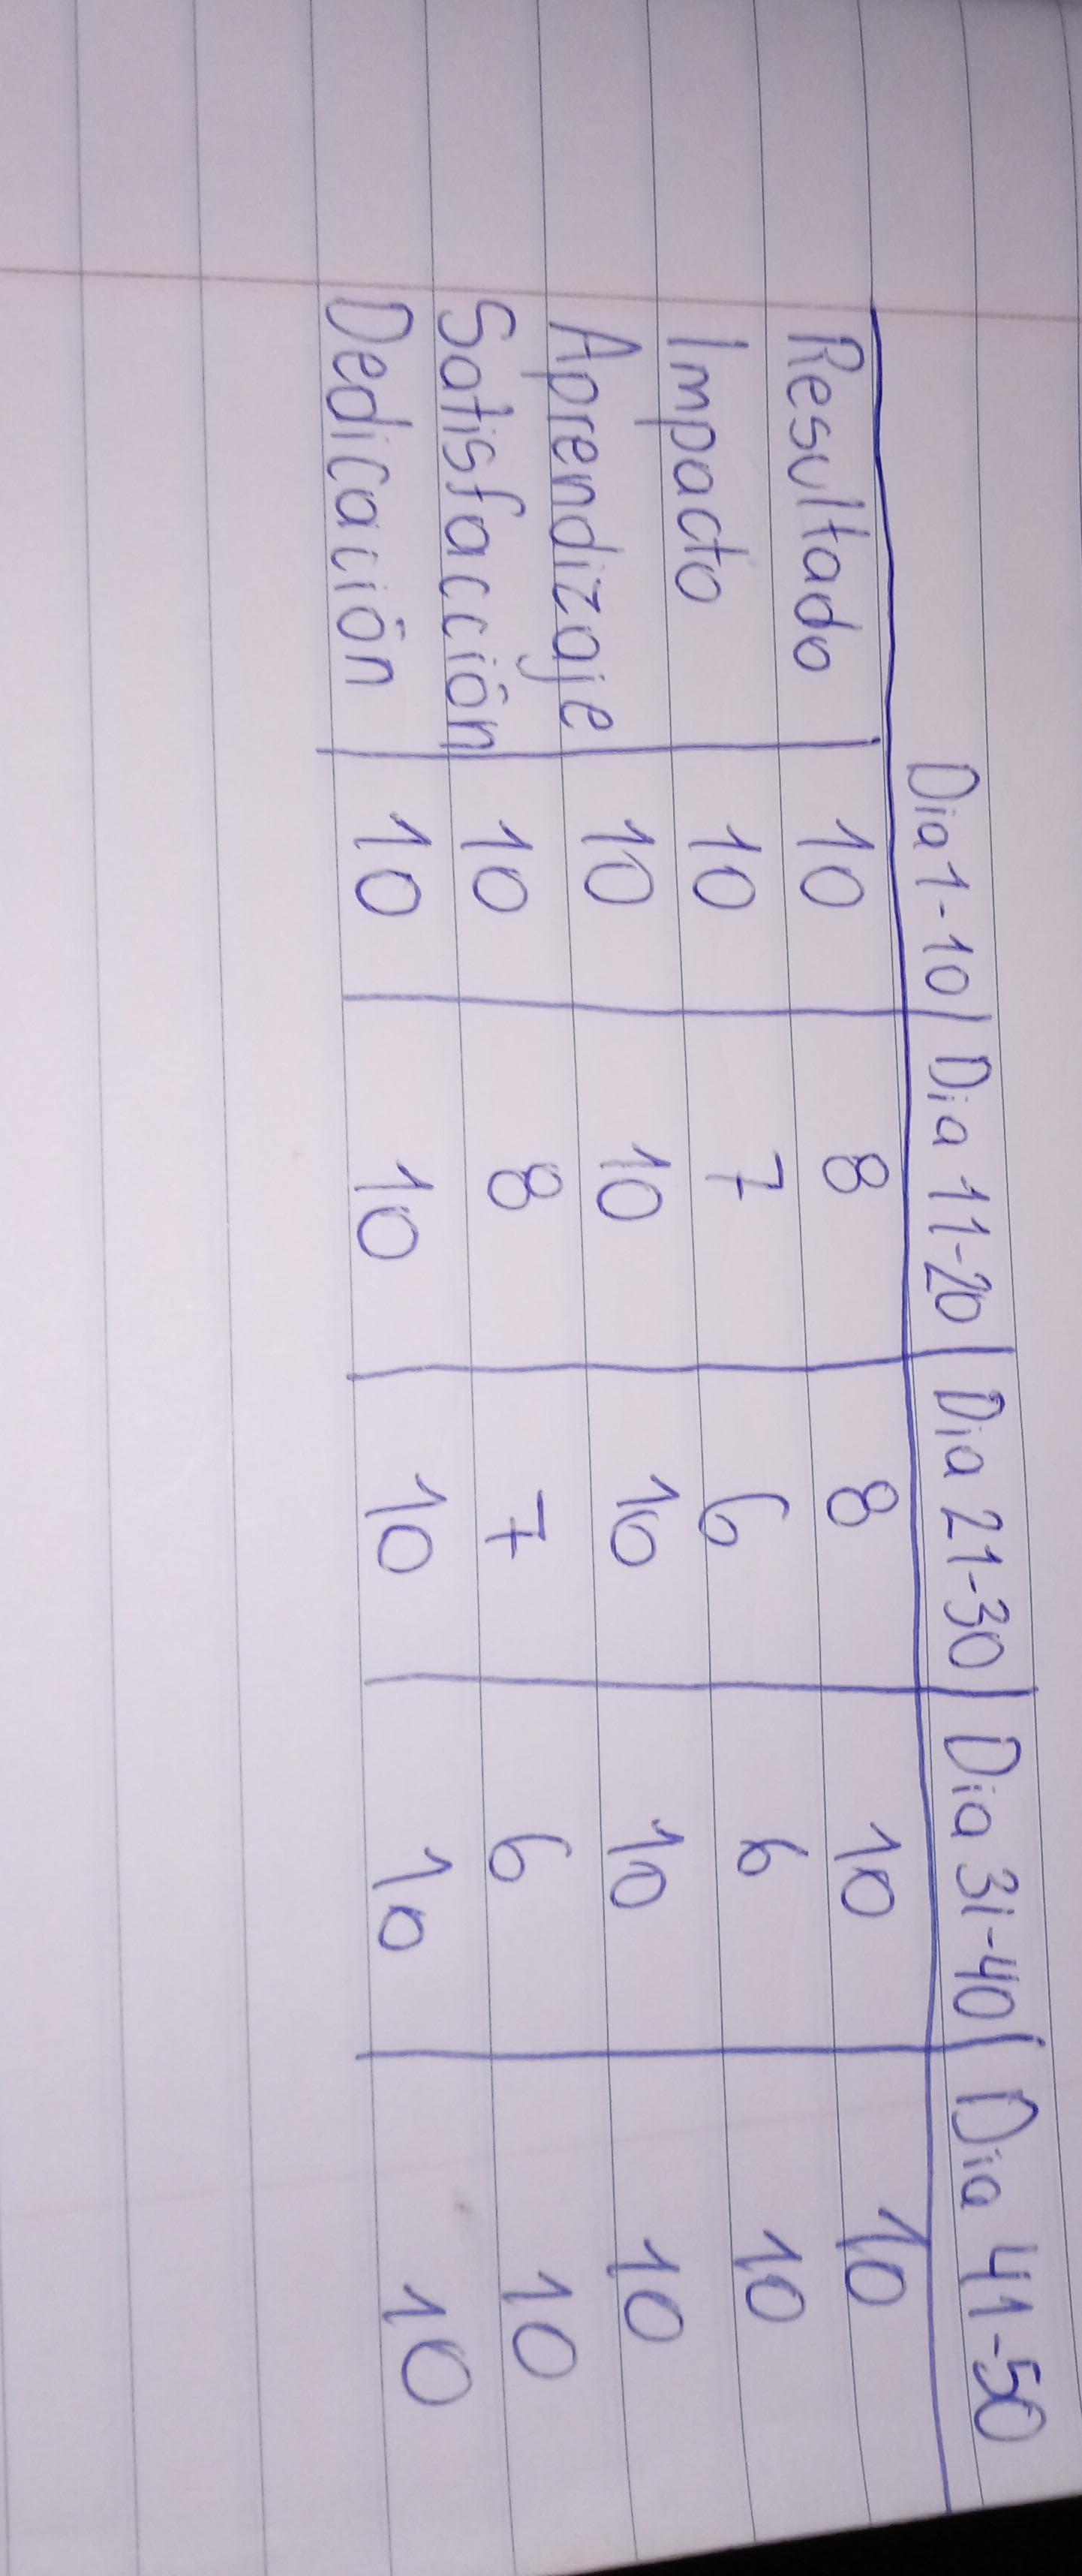 Dia 1-10 | Dia 11-20 | Dia 21-30 | Dia 31-40 | Dia 41-50
Resultado | 10 | 8 | 8 | 10 | 10
Impacto | 10 | 7 | 6 | 6 | 10
Aprendizaje | 10 | 10 | 10 | 10 | 10
Satisfacción | 10 | 8 | 7 | 6 | 10
Dedicación | 10 | 10 | 10 | 10 | 10